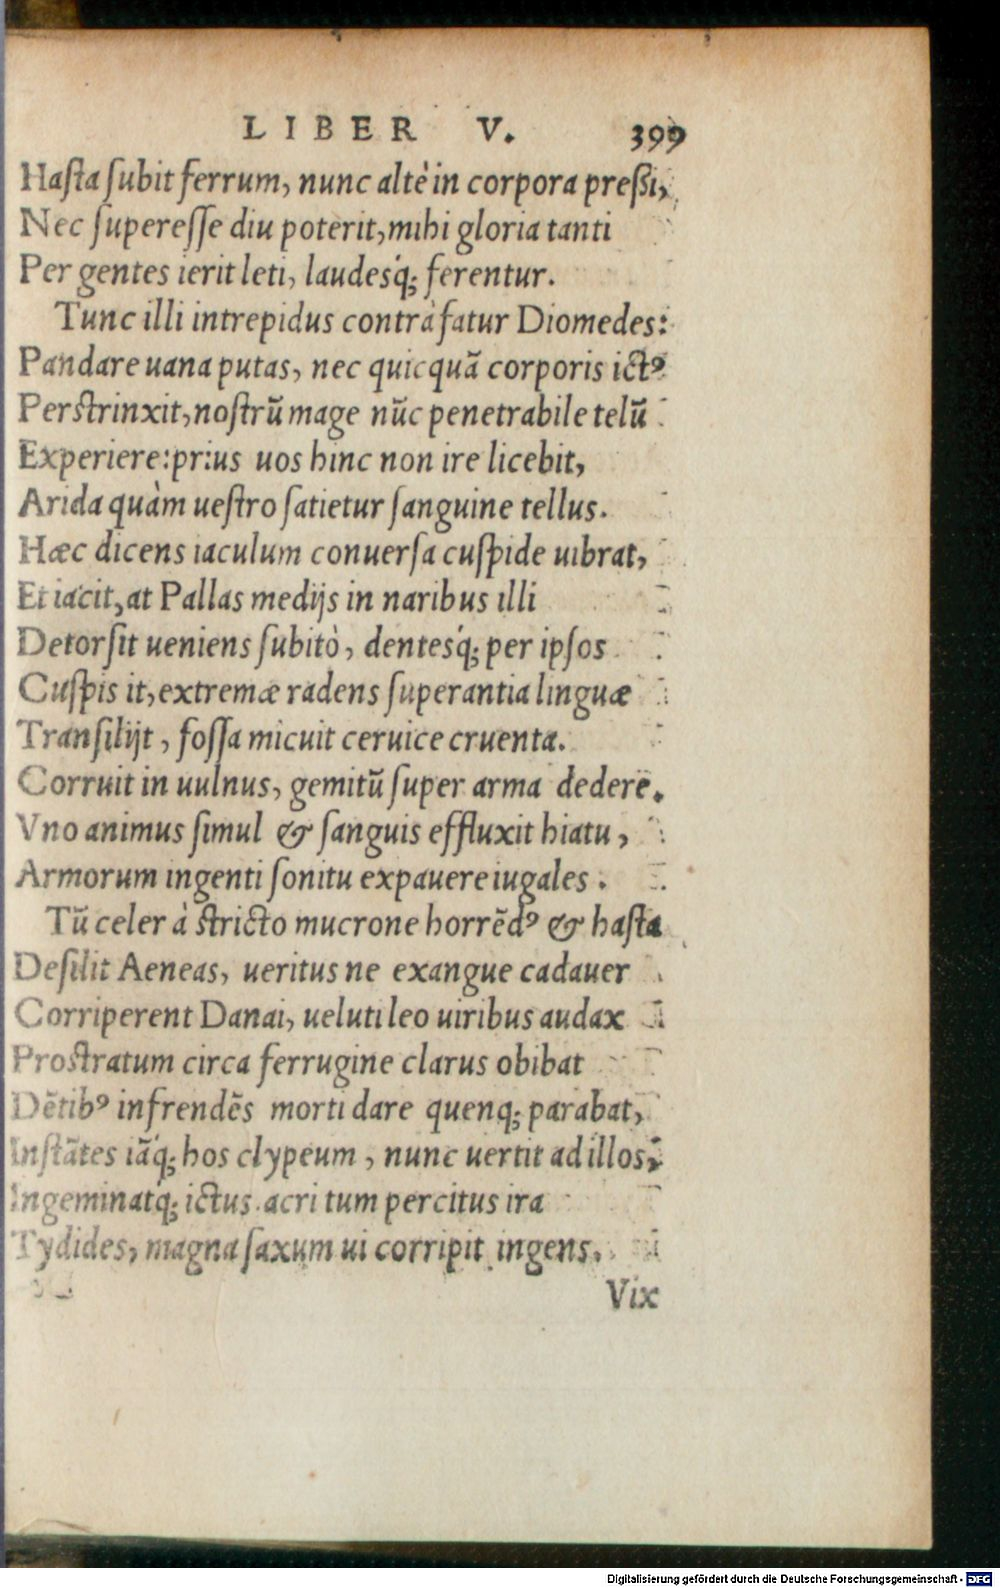 LIBER V. 399
Hasta subit ferrum, nunc altè in corpora pressi,
Nec superesse diu poterit, mihi gloria tanti
Per gentes ierit leti, laudesq́; ferentur.
Tunc illi intrepidus contrà fatur Diomedes:
Pandare uana putas, nec quicquã corporis ictꝰ
Perstrinxit, nostrũ mage nũc penetrabile telũ
Experiere: prius uos hinc non ire licebit,
Arida quàm uestro satietur sanguine tellus.
Hæc dicens iaculum conuersa cuspide uibrat,
Et iacit, at Pallas medijs in naribus illi
Detorsit ueniens subitò, dentesq́; per ipsos
Cuspis it, extremæ radens superantia linguæ
Transilijt, fossa micuit ceruice cruenta.
Corruit in uulnus, gemitũ super arma dedere.
Vno animus simul & sanguis effluxit hiatu,
Armorum ingenti sonitu expauere iugales.
Tũ celer à stricto mucrone horrẽdꝰ & hasta
Desilit Aeneas, ueritus ne exangue cadauer
Corriperent Danai, ueluti leo uiribus audax
Prostratum circa ferrugine clarus obibat
Dẽtibꝰ infrendẽs morti dare quenq; parabat,
Instãtes iãq́; hos clypeum, nunc uertit ad illos,
Ingeminatq́; ictus. acri tum percitus ira
Tydides, magna saxum ui corripit ingens.
Vix
Digitalisierung gefördert durch die Deutsche Forschungsgemeinschaft - DFG